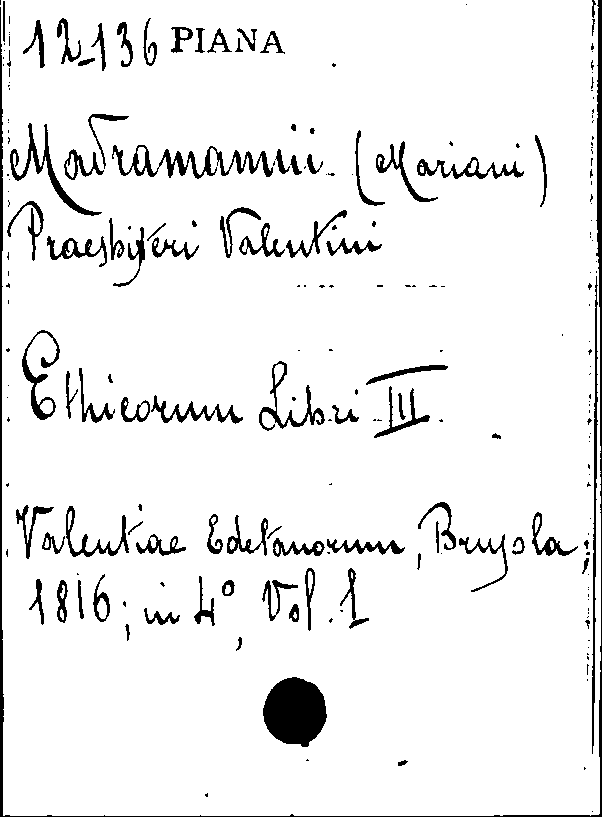 12-136 PIANA
Madramannii (Mariani)
Praesbiteri Valentini
Ethicorum Libri III.
Valentiae Edetanorum, Brusola,
1816; in 4º, Vol. 1